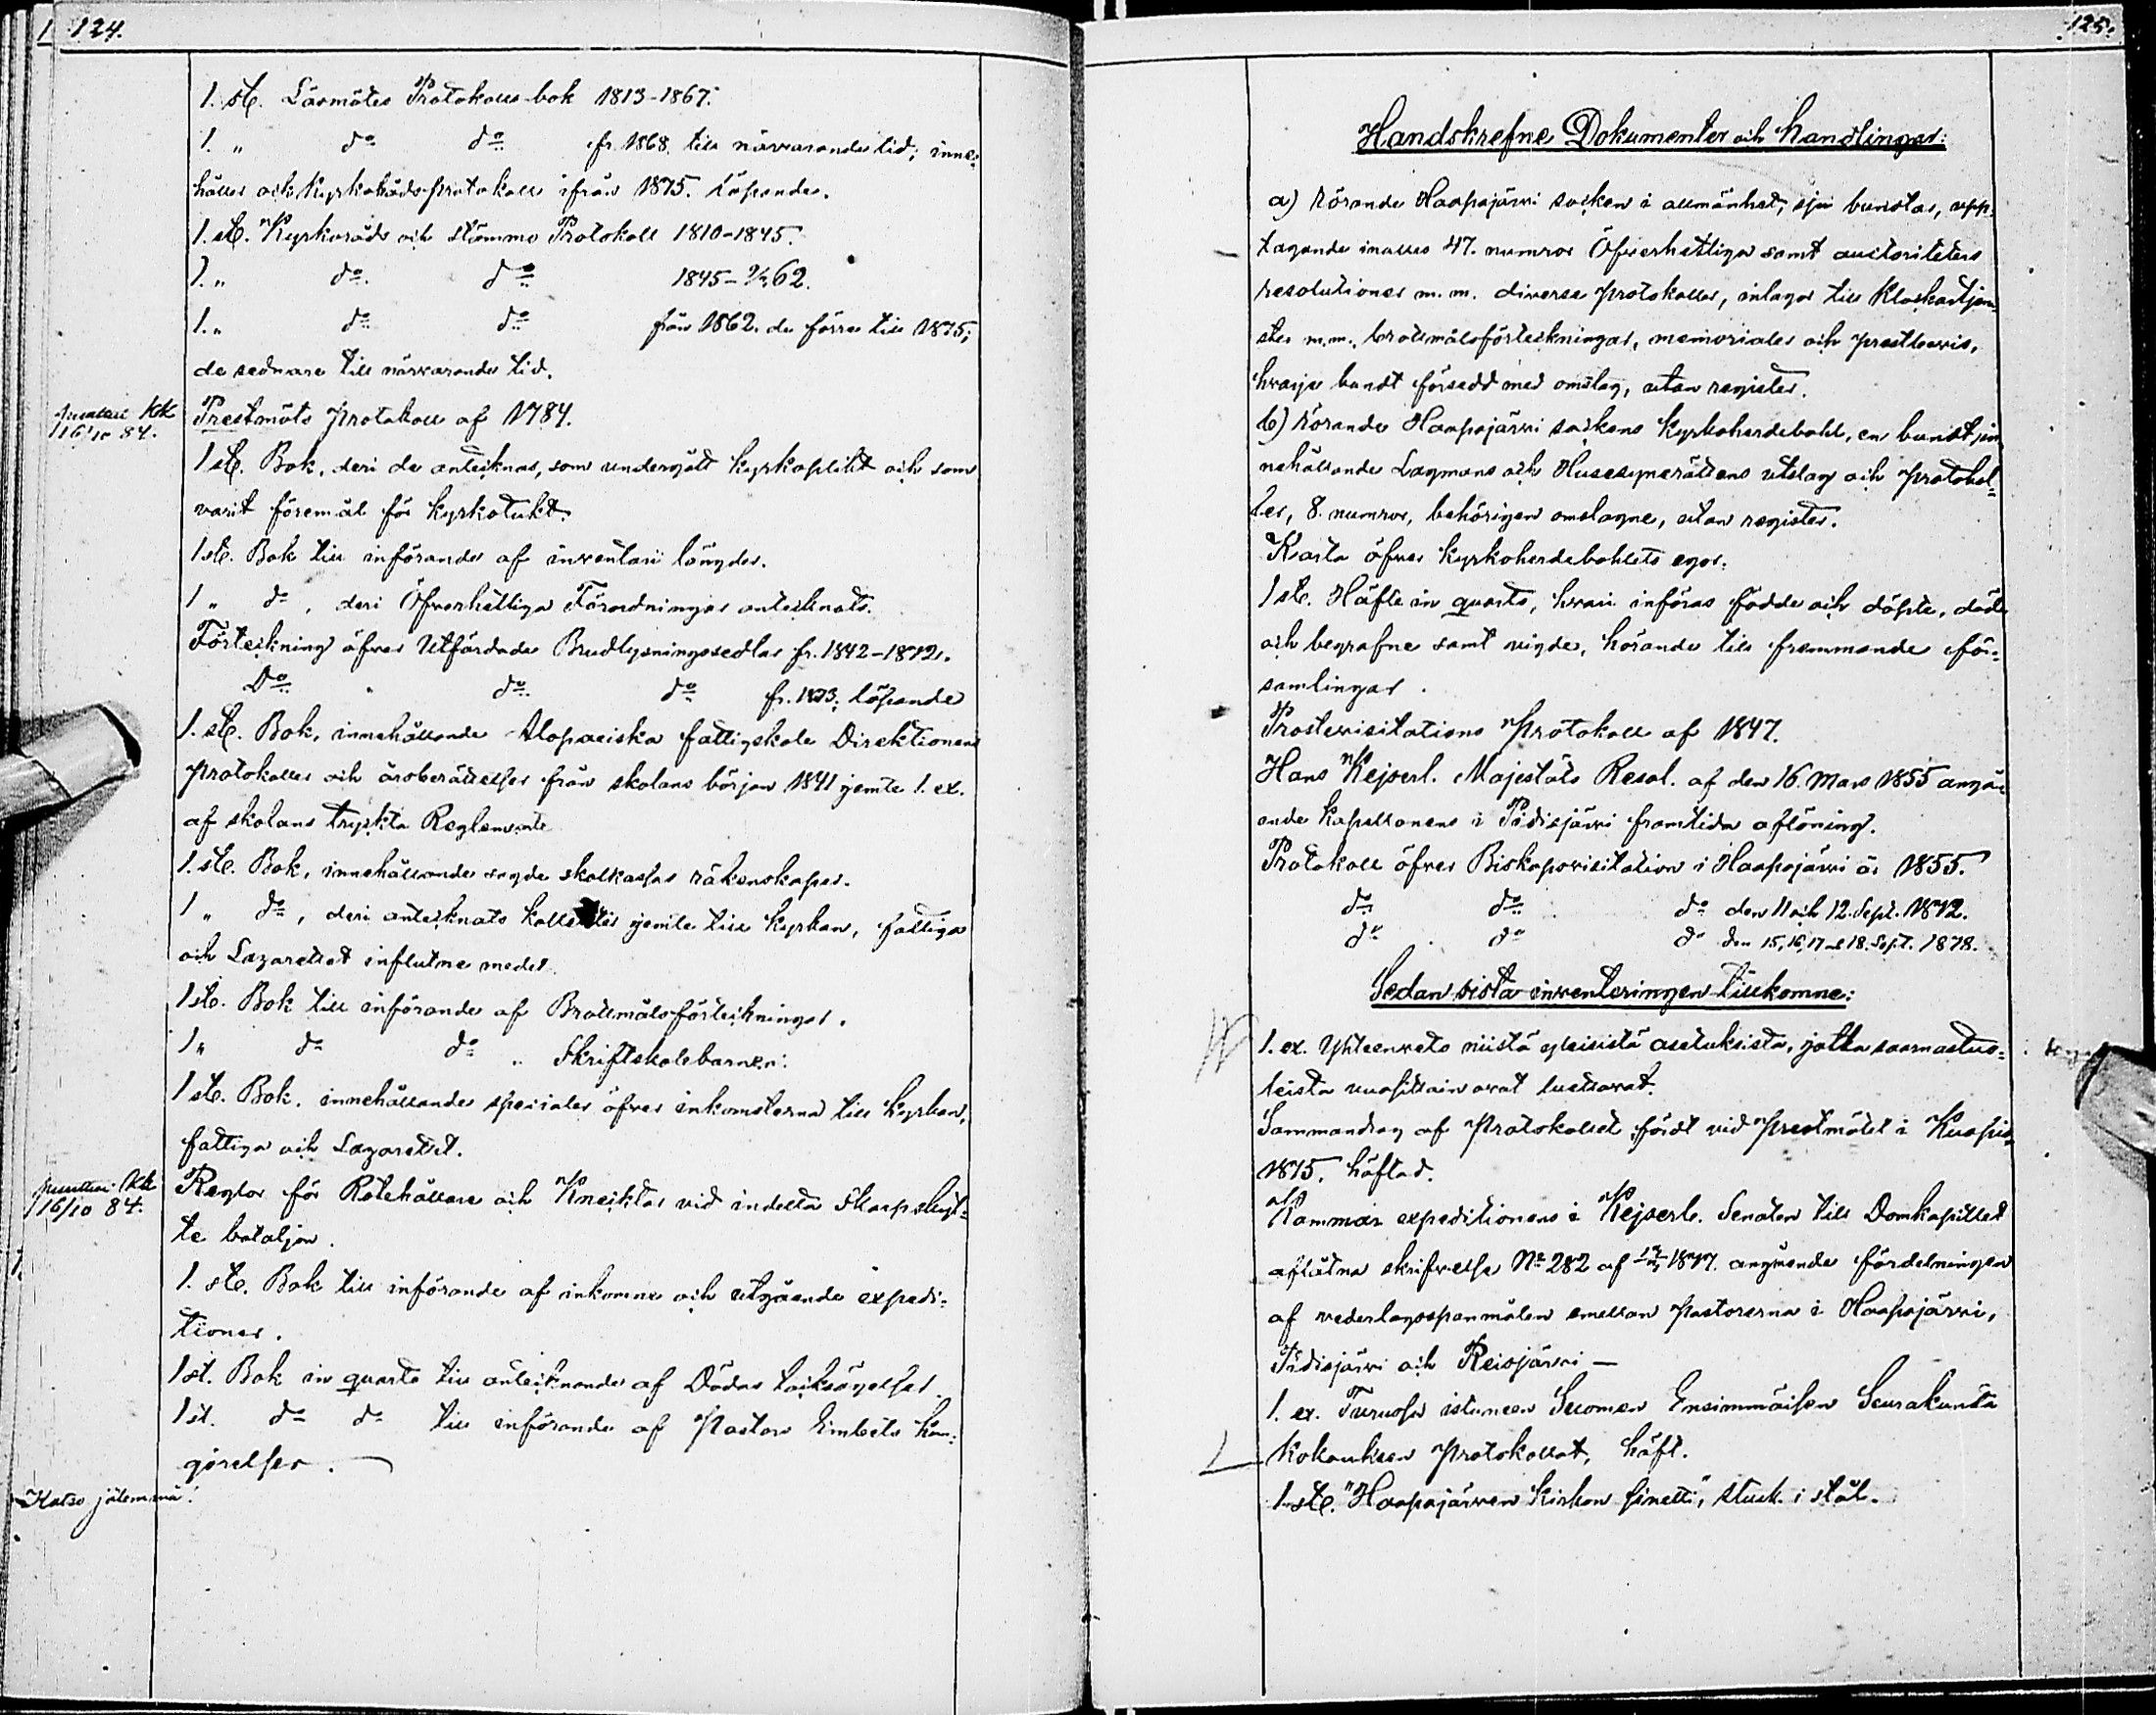 124.
1. st. Läsmötes Protokolls-bok 1813-1867.
1. " do do fr. 1868. till närvarande tid; inne-
håller och Kyrkoråds-protokoll ifrån 1875. löpande.
1. st. Kyrkoråds och stämmo Protokoll 1810-1845.
1. " do do 1845- 62.
1. " do do från 1862. de förra till 1875;
de sednare till närvarande tid.
KK
16/10 84.
Prestmöts protokoll af 1784.
1 st. Bok, deri de antecknas, som undergått kyrkoplikt och som
varit föremål för kyrkotukt.
1 st. Bok till införande af inventarii längder.
1 " do, deri Öfverhetliga Förordningar antecknats.
Förteckning öfver Utfärdade Brudlysningssedlar fr. 1842-1872.
Do " do do fr. 1873. löpande
1. st. Bok, innehållande Alopaeiska fattigskole Direktionens
protokoller och årsberättelser från skolans början 1841 jemte 1. ex.
af skolans tryckta Reglemente
1. st. Bok, innehållande sagde skolkassas räkenskaper.
1 " do, deri antecknats kollekter jemte till kyrkan, fattiga
och Lazarettet influtne medel.
1 st. Bok till införande af Brottmålsförteckningar.
1 " do do " Skriftskolebarnen:
1 st. Bok, innehållande specialer öfver inkomsterna till kyrkan,
fattiga och Lazarettet.
KK
16/10 84.
Reglor för Rotehållare och Knecktar vid indelta Skarpskyt-
te bataljon.
1. st. Bok till införande af inkomne och utgående expedi-
tioner.
1 st. Bok in quarto till antecknande af Dödas tacksägelser
1 st. do do till införande af Pastors Embets kun-
görelser.
Katso jälemmä!
125.
Handskrefne Dokumenter och handlingar:
a) rörande Haapajärvi socken i allmänhet, sju buntar, upp-
tagande inalles 47. numror Öfverhetliga samt auctoriteters
resolutioner m. m. diverse protokoller, inlagor till Klockartjen-
ster m.m., brottmålsförteckningar, memorialer och prestbevis,
hvarje bundt försedd med omslag, utan register.
b) rörande Haapajärvi sockens kyrkoherdebohl, en bundt, in-
nehållande Lagmans och Husesynerättens utslag och protokol-
ler, 8. numror, behörigen omslagne, utan register.
Karta öfver kyrkoherdebohlets egor.
1 st. Häfte in quarto, hvari införas födde och döpte, död
och begrafne samt vigde, hörande till främmande för-
samlingar.
Prostevisitations Protokoll af 1847.
Hans Kejserl. Majestäts Resol. af den 16. Mars 1855 angå-
ende kapellanens i Pidisjärvi framtida aflöning.
Protokoll öfver Biskopsvisitation i Haapajärvi år 1855.
do do do den 11 och 12. Sept. 1872.
do do do den 15, 16, 17 18. Sept. 1878.
Sedan sista inventeringen tillkomne:
1. ex. Yhteenveto niistä yleisistä asetuksista, jotka saarnastuo-
leista vuosittain ovat luettavat.
Sammandrag af Protokollet, fördt vid Prestmötet i Kuopio
1875. häftad.
Kammar expeditionens i Kejserl. Senaten till Domkapitlet
aflåtna skrifvelse No 282 af 1877. angående fördelningen
af vederlagsspanmålen emellan pastorerna i Haapajärvi,
Pidisjärvi och Reisjärvi —
1. ex. Turussa istuneen Suomen Ensimmäisen Seurakunta
kokouksen protokollat, häft.
1. st. "Haapajärven kirkon sinetti", stuck. i stål.